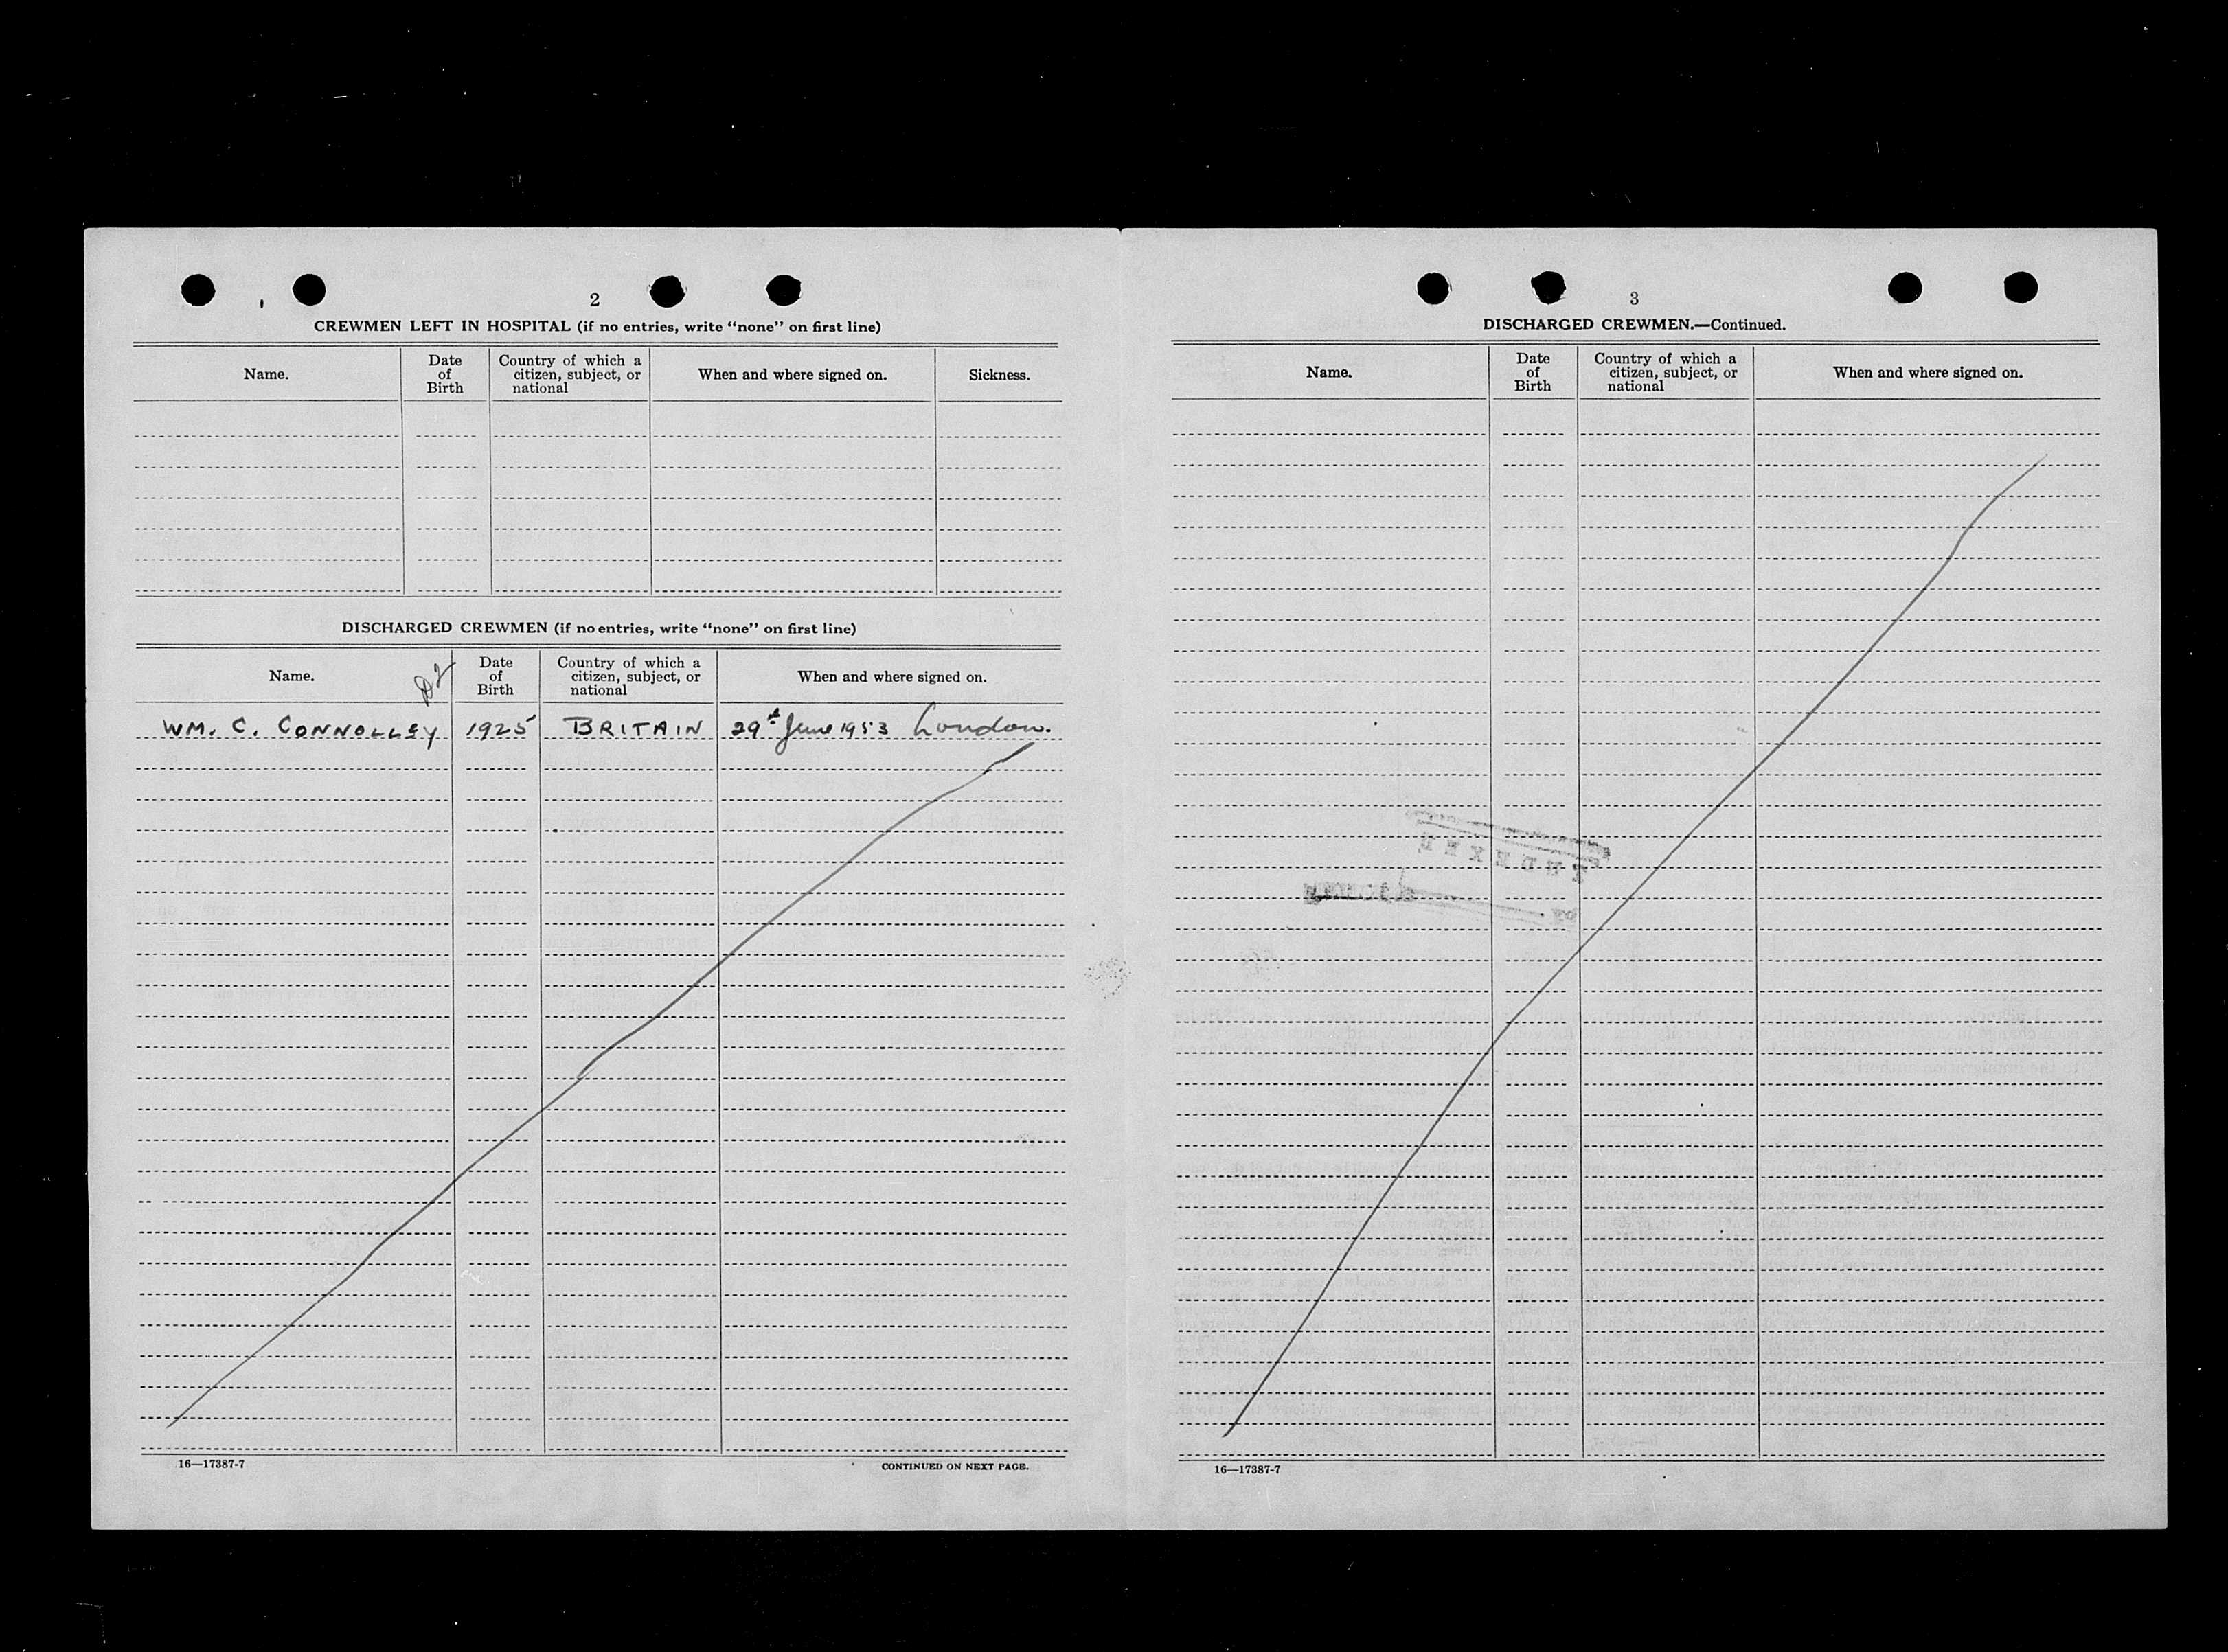 2
CREWMEN LEFT IN HOSPITAL (if no entries, write “none” on first line)
Name.
Date of Birth
Country of which a citizen, subject, or national
When and where signed on.
Sickness.
DISCHARGED CREWMEN (if no entries, write “none” on first line)
Name.
D2
Date of Birth
Country of which a citizen, subject, or national
When and where signed on.
WM. C. CONNOLLEY 1925 BRITAIN 29th June 1953 London.
16—17387-7
CONTINUED ON NEXT PAGE.
3
DISCHARGED CREWMEN.—Continued.
Name.
Date of Birth
Country of which a citizen, subject, or national
When and where signed on.
16—17387-7